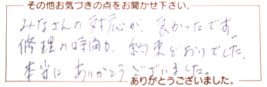 その他お気づきの点をお聞かせ下さい。
みなさんの対応が、良かったです。
修理の時間も、約束どおりでした。
本当にありがとうございました。
ありがとうございました。